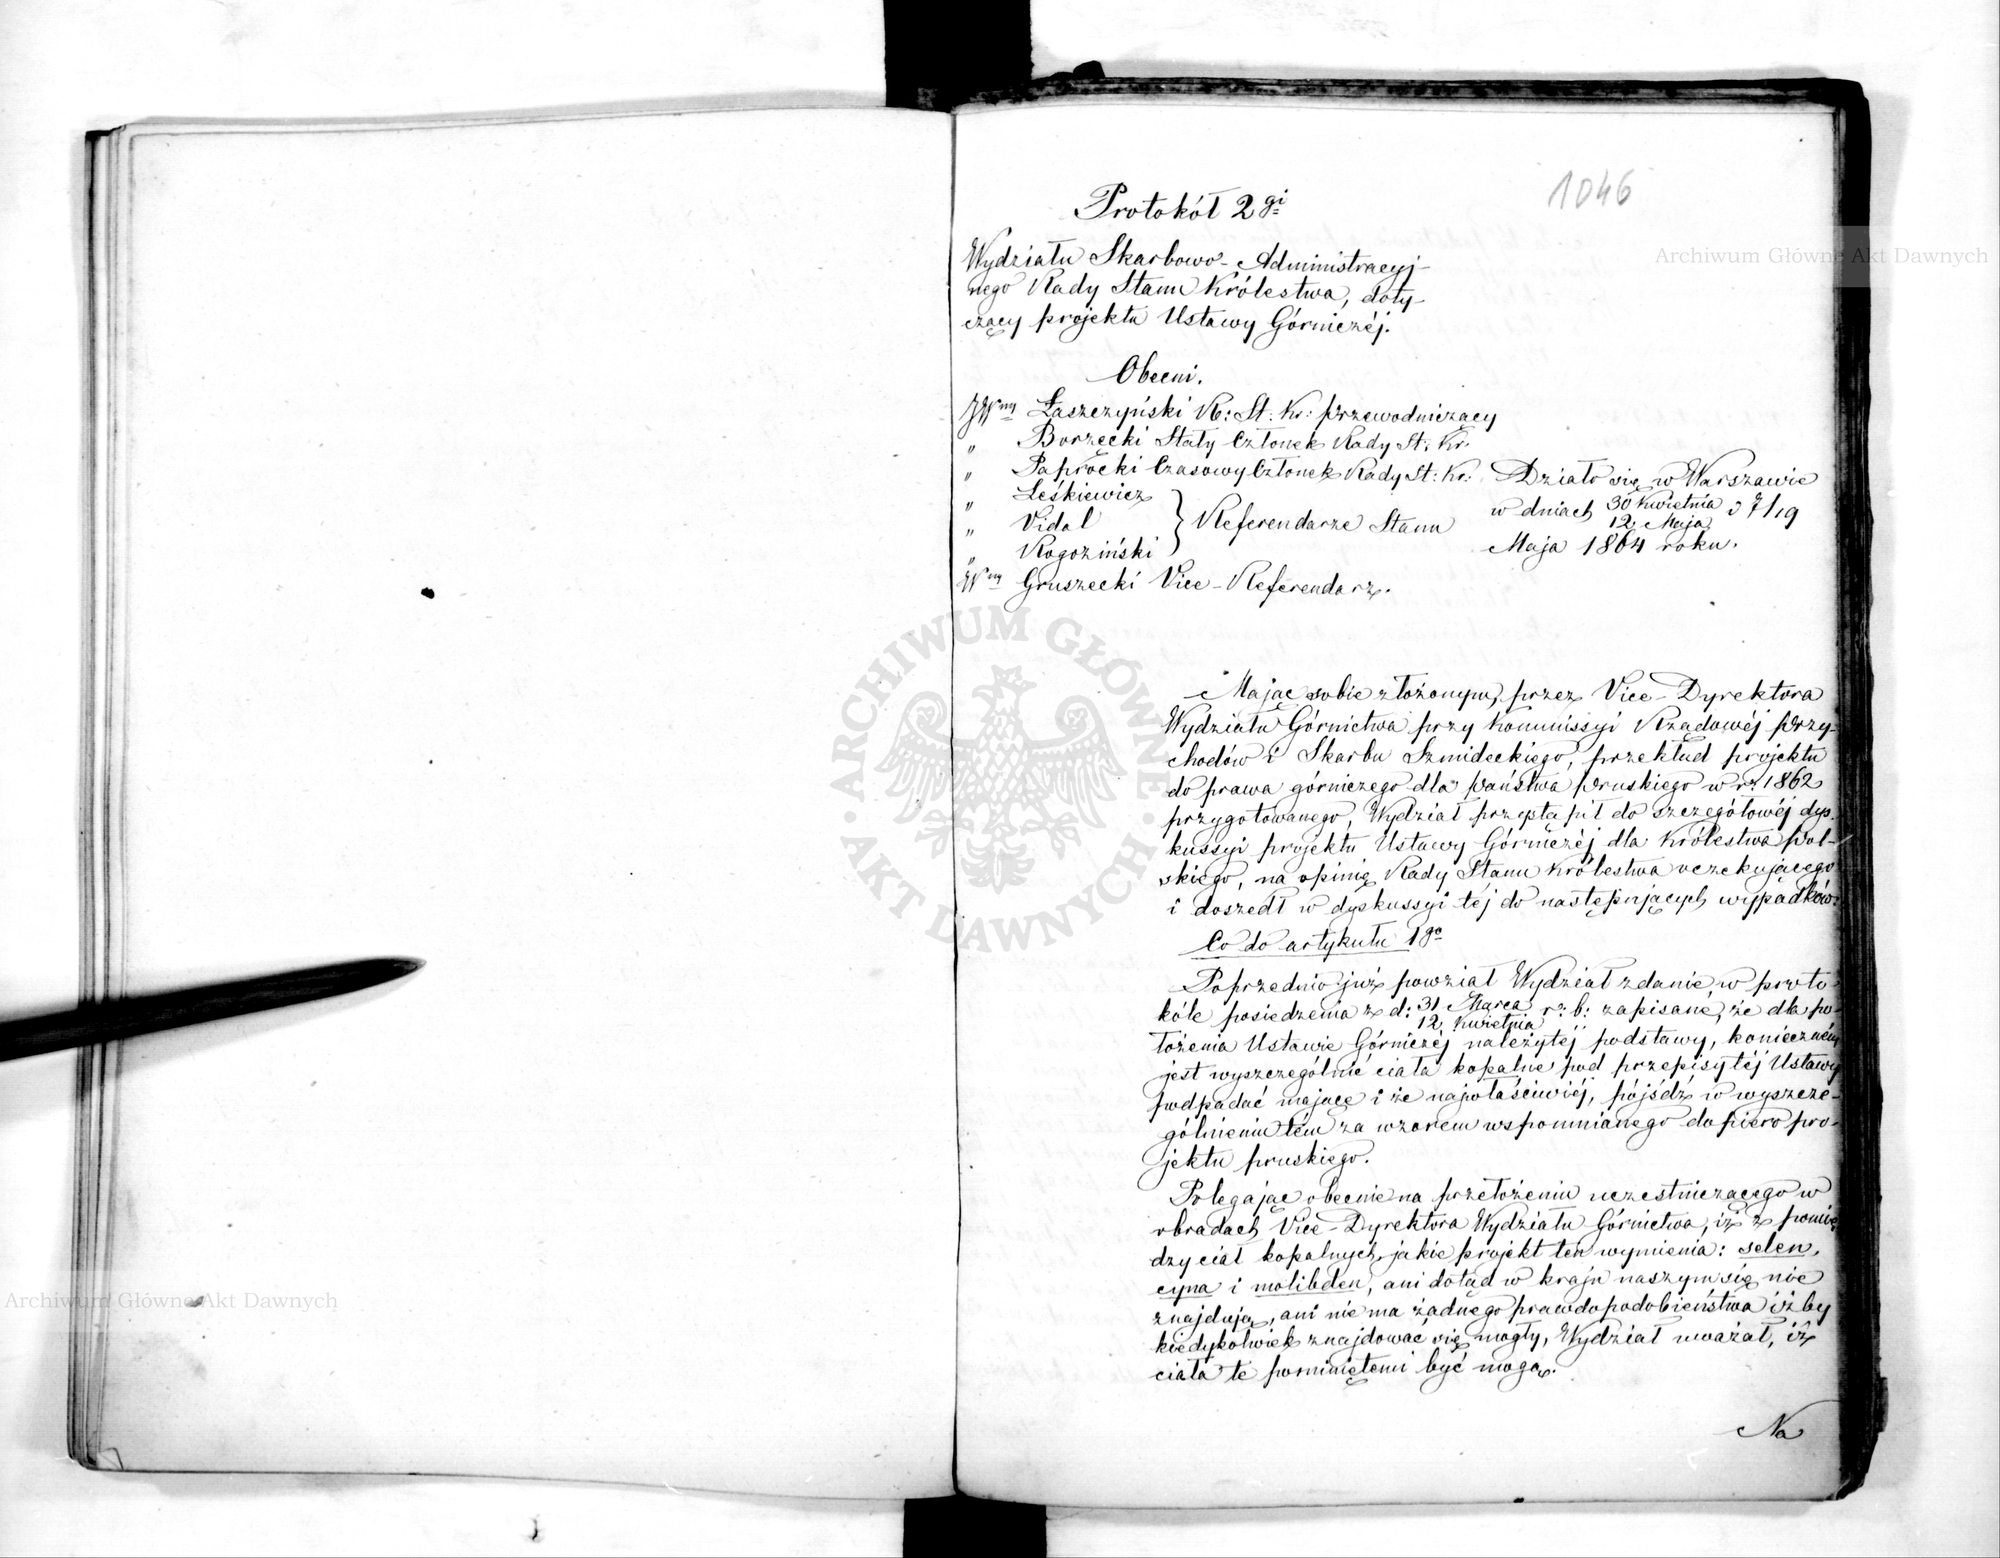 1046
Protokół 2gi
Wydziału Skarbowo-Administracyj-
nego Rady Stanu Królestwa, doty-
czący projektu Ustawy Górniczéj.
Obecni.
JWny Łaszczyński R: St: Kr: Przewodniczący
„ Borzęcki Stały Członek Rady St: Kr.
„ Paprocki Czasowy Członek Rady St: Kr:
„ Leśkiewicz
„ Vidal } Referendarze Stanu
„ Rogoziński
Wny Gruszecki Vice-Referendarz.
Działo się w Warszawie
w dniach 30 Kwietnia/12 Maja i 7/19
Maja 1864 roku.
Mając sobie złożonym, przez Vice-Dyrektora
Wydziału Górnictwa przy Kommissyi Rządowéj Przy-
chodów i Skarbu Szmideckiego, przekład projektu
do prawa górniczego dla Państwa Pruskiego w r: 1862
przygotowanego, Wydział przystąpił do szczegółowéj dys-
kussyi projektu Ustawy Górniczéj dla Królestwa Pol-
skiego, na opinię Rady Stanu Królestwa oczekującego
i doszedł w dyskussyi téj do następujących wypadków:
Co do artykułu 1go
Poprzednio już powziął Wydział zdanie w proto-
kóle posiedzenia z d: 31 Marca/12 Kwietnia r: b: zapisane, że dla po-
łożenia Ustawie Górniczéj należytéj podstawy, konieczném
jest wyszczególnić ciała kopalne pod przepisy téj Ustawy
podpadać mające i że najwłaściwiéj, pójśdź w wyszcze-
gólnieniu tém za wzorem wspomnianego dopiero pro-
jektu pruskiego.
Polegając obecnie na przełożeniu uczestniczącego w
obradach Vice-Dyrektora Wydziału Górnictwa, iż z pomię-
dzy ciał kopalnych, jakie projekt ten wymienia: selen,
cyna i molibden, ani dotąd w kraju naszym się nie
znajdują, ani nie ma żadnego prawdopodobieństwa iżby
kiedykolwiek znajdować się mogły, Wydział uważał, iż
ciała te pominiętemi być mogą.
Na
Archiwum Główne Akt Dawnych
Archiwum Główne Akt Dawnych
ARCHIWUM GŁÓWNE · AKT DAWNYCH ·